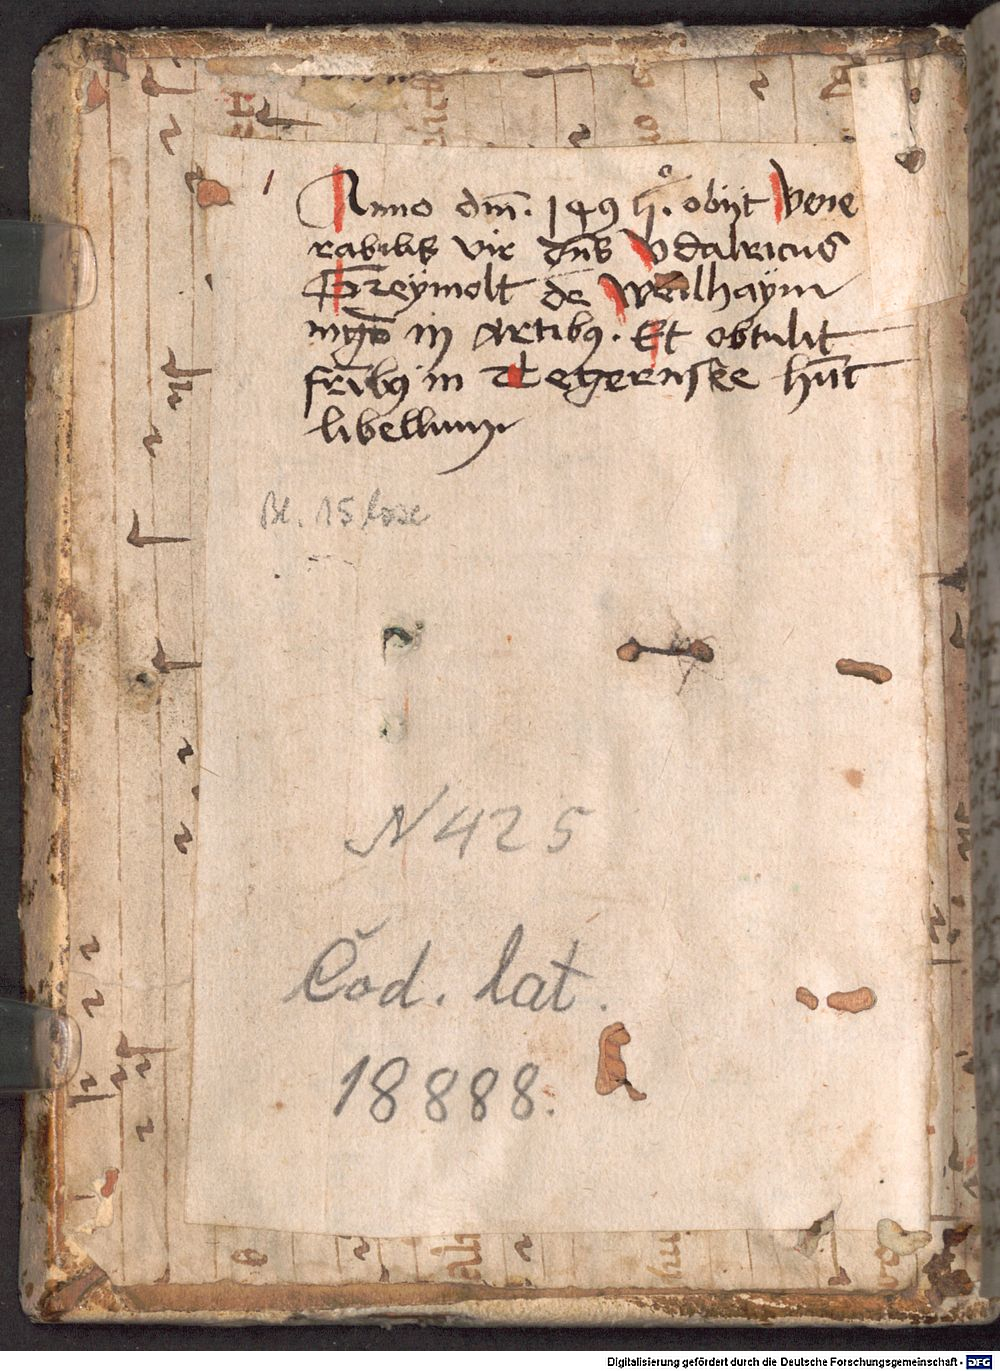 Anno dm̄. 149 q̊. obijt Vene
rabilis vir dn̄s Vdalricus
Greymolt de Weilhaym
mgr̄ in Artibꝯ. Et obtulit
fr̄ibꝯ in Tegernsee hūc
libellum
Bl. 15 lose
N 425
Cod. lat.
18888.
Digitalisierung gefördert durch die Deutsche Forschungsgemeinschaft - DFG